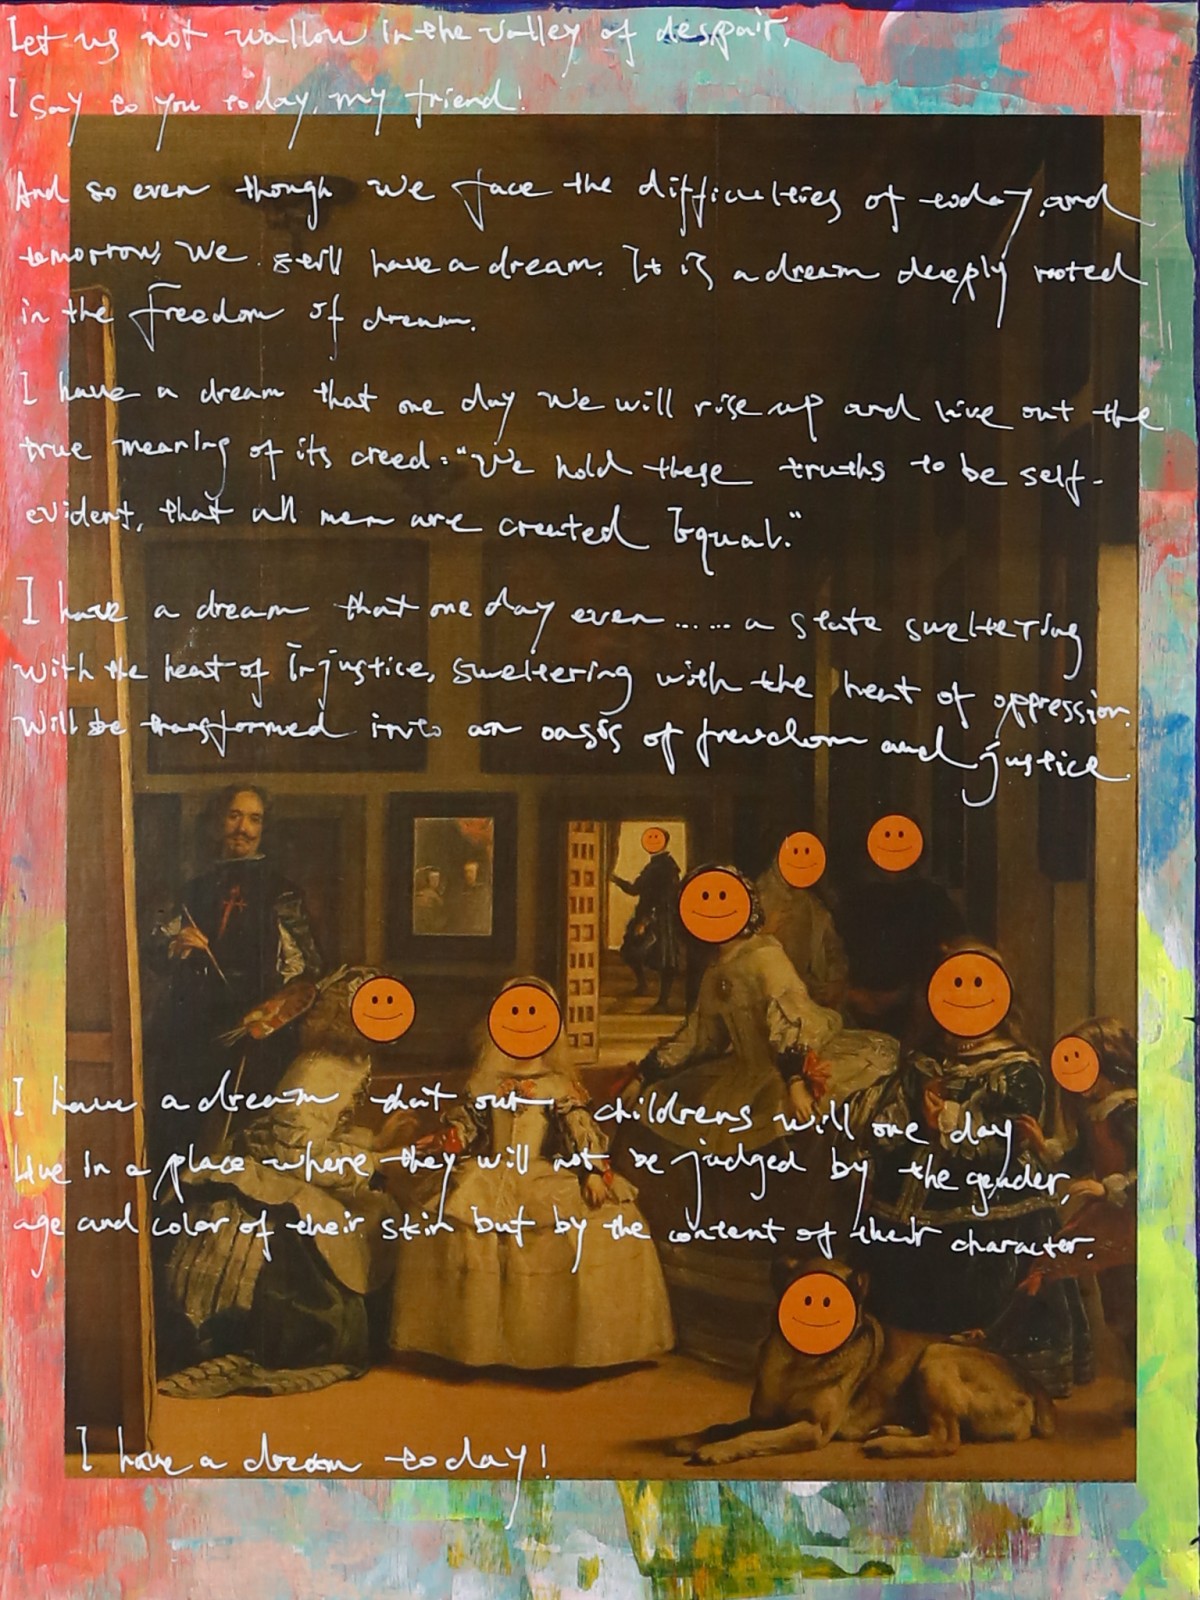 Let us not wallow in the valley of despair,
I say to you today, my friend!
And so even though we face the difficulties of today, and
tomorrow, we still have a dream. It is a dream deeply rooted
in the freedom of dream.
I have a dream that one day we will rise up and live out the
true meaning of its creed: "We hold these truths to be self-
evident, that all men are created Equal."
I have a dream that one day even ...... a state sweltering
with the heat of Injustice, sweltering with the heat of oppression.
will be transformed into an oasis of freedom and justice.
I have a dream that our childrens will one day
live in a place where they will not be judged by the gender,
age and color of their skin but by the content of their character.
I have a dream today!